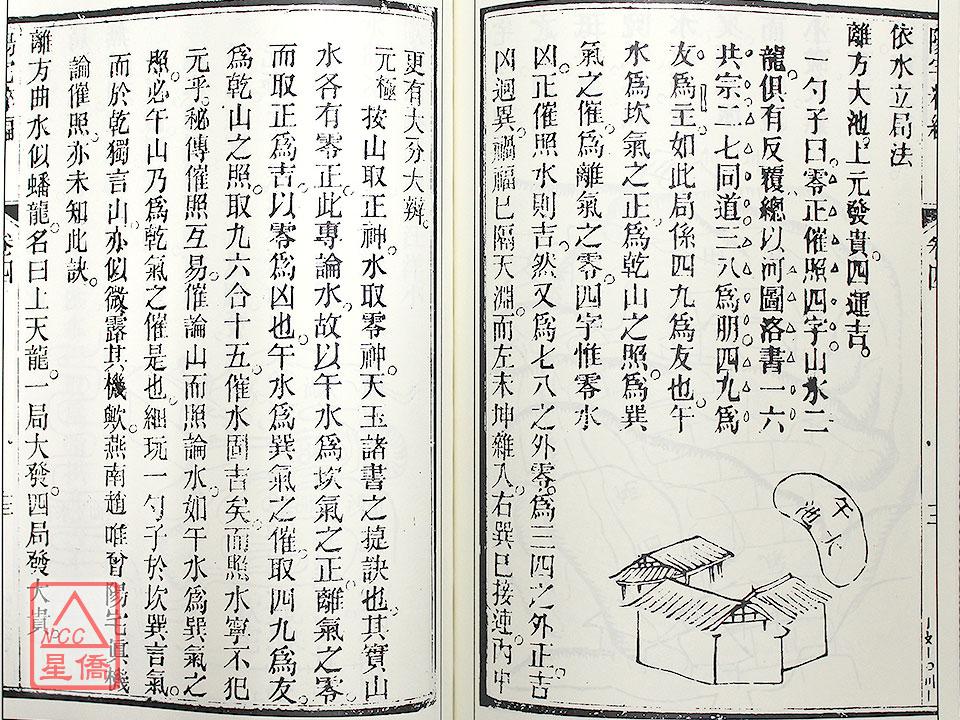 依水立局法
離方大池上元發貴四運吉
一勺子曰零正催照四字山水二
龍俱有反覆總以河圖洛書一六
共宗二七同道三八為朋四九為
友為主如此局係四九為友也午
水為坎氣之正為乾山之照為巽
氣之催為離氣之零四字惟零水
凶正催照水則吉然又為七八之外零為三四之外正吉
凶迥異禍福已隔天淵而左未坤雜入右巽巳接連內中
午大池
更有大分大辨
元極 按山取正神水取零神天玉諸書之捷訣也其實山
水各有零正此專論水故以午水為坎氣之正離氣之零
而取正為吉以零為凶也午水為巽氣之催取四九為友
為乾山之照取九六合十五催水固吉矣而照水寧不犯
元乎秘傳催照互易催論山而照論水如午水為巽氣之
照必午山乃為乾氣之催是也細玩一勺子於坎巽言氣
而於乾獨言山亦似微露其機歟燕南趙唯曾陽宅眞機
論催照亦未知此訣
離方曲水似蟠龍名曰上天龍一局大發四局發大貴
卷四
NPCC
星僑